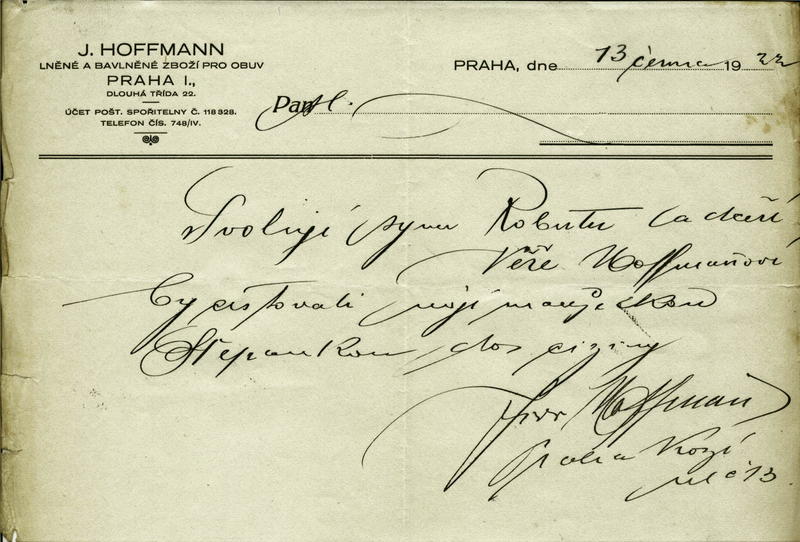 J. HOFFMANN
LNĚNÉ A BAVLNĚNÉ ZBOŽÍ PRO OBUV
PRAHA I.,
DLOUHÁ TŘÍDA 22.
ÚČET POŠT. SPOŘITELNY Č. 118328.
TELEFON ČÍS. 748/IV.
PRAHA, dne 13 června 19 22
Pan
Svoluji syna Roberta a dceři
Věře Hoffmanovi
cestovati mojí manželkou
Štěpankou do ciziny
Hoffman
Praha Kozí
ul č 13